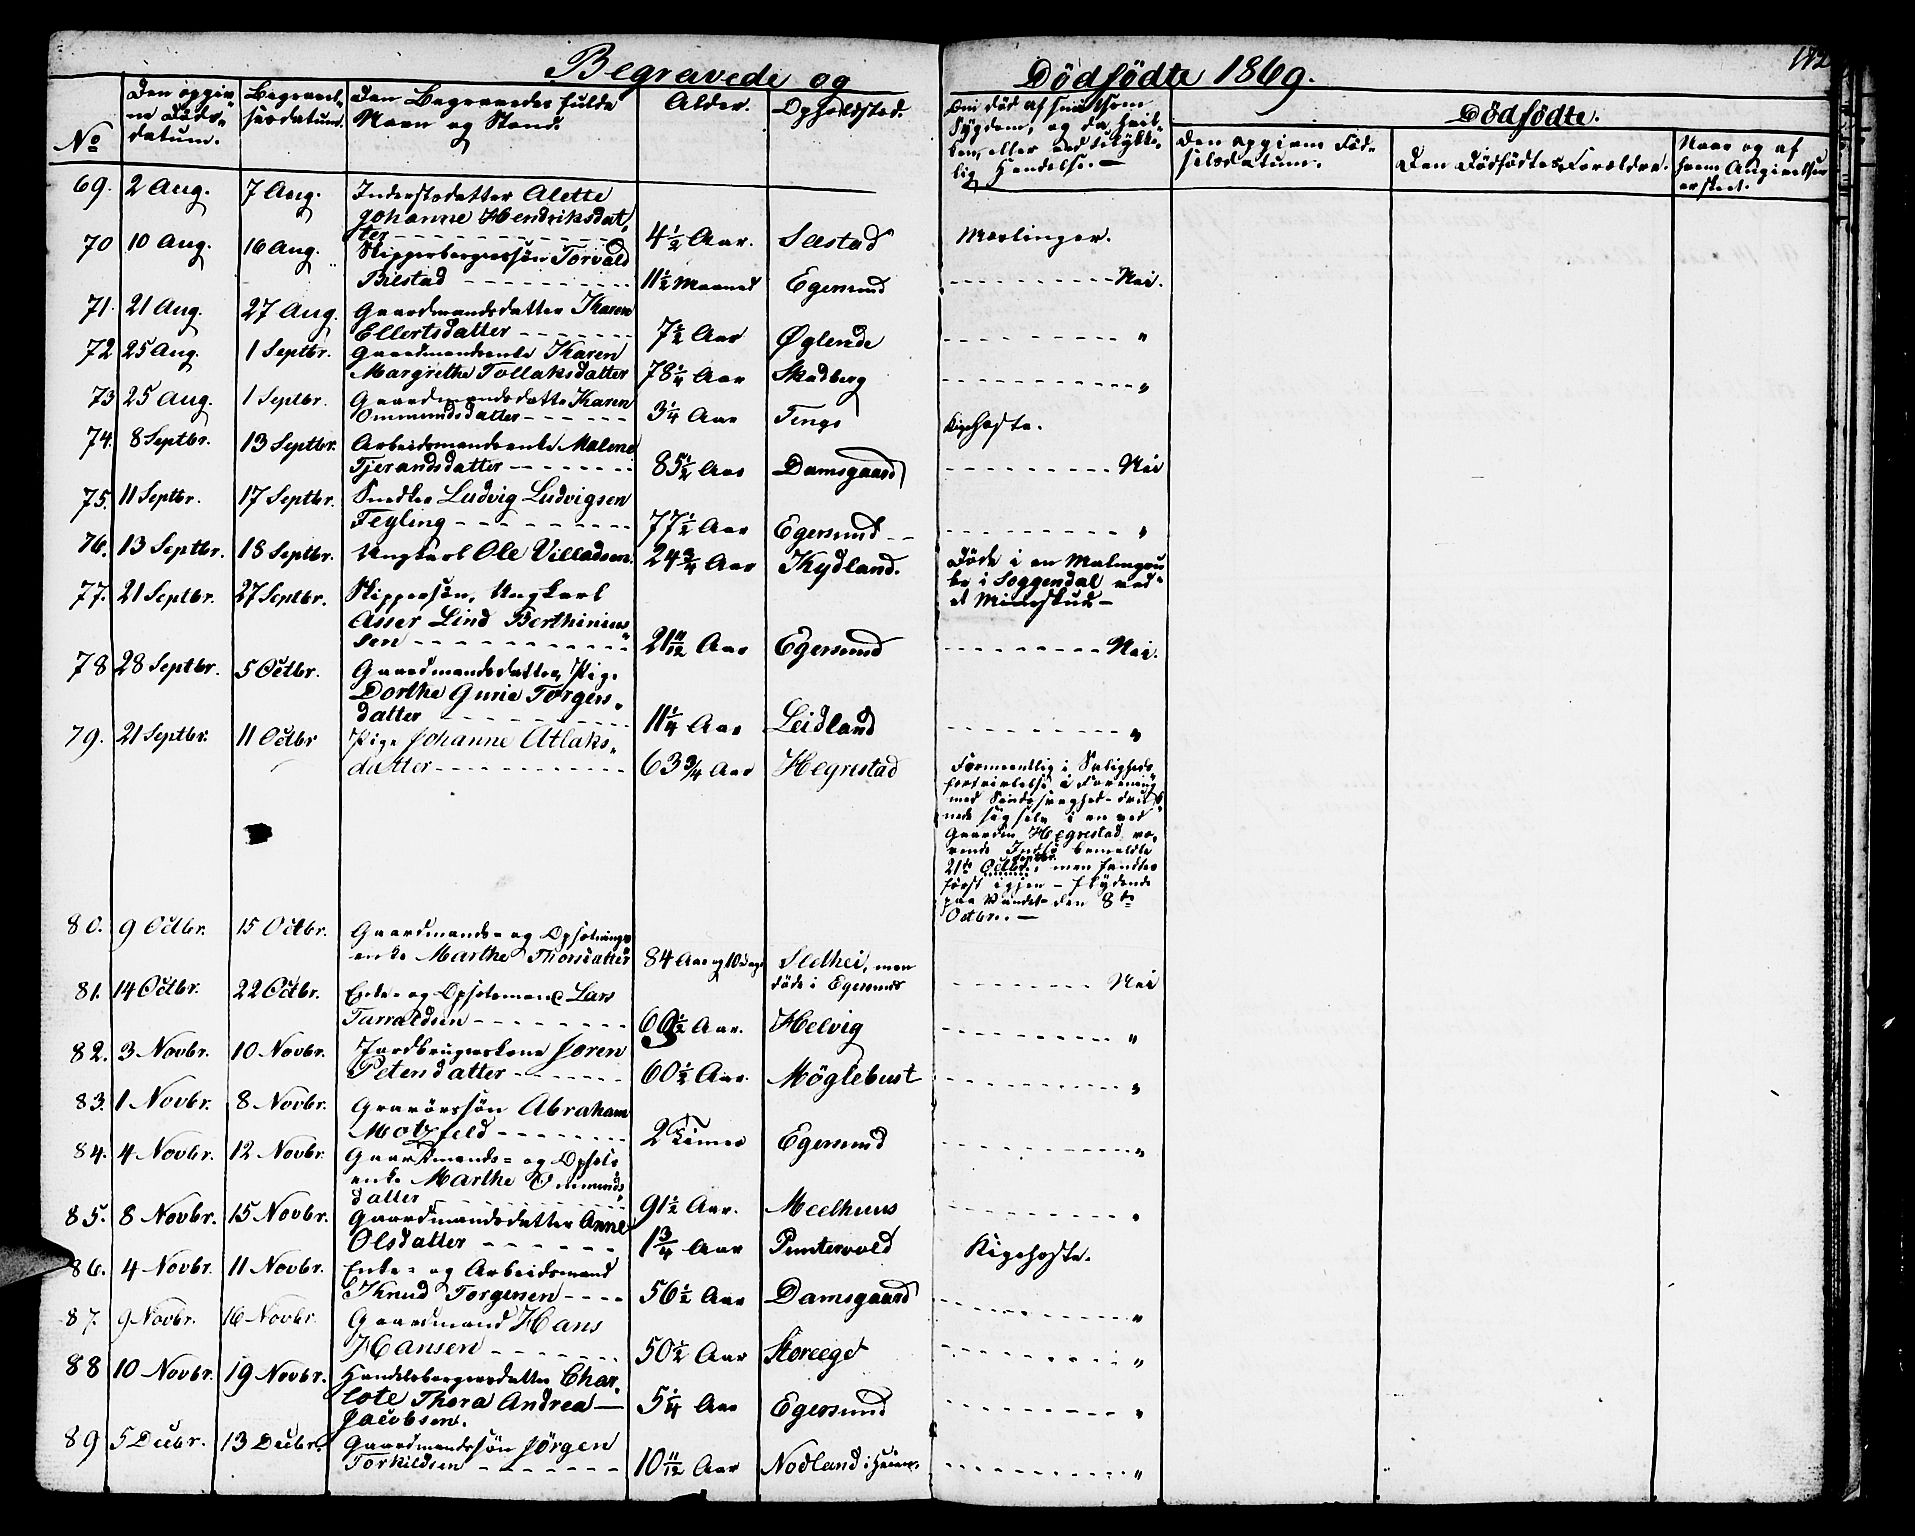 Begravede og Dödfödte 1869.
182
No
Den opgivne Döds-datum.
Begravelsesdatum.
Den Begravedes fulde Navn og Stand.
Alder.
Opholdsted.
Om död af smitsom Sygdom, og da hvilken, eller ved ulykkelig Hendelse.—
Dödfödte.
Den opgivne Födselsdatum.
Den Dödfödtes Forældre.
Naar og af hvem Angivelsen er skeet.
69. 2 Aug. 7 Aug. Inderstsdatter Alette
Johanne Hendriksdat-
ter 4½ Aar. Sæstad Mæslinger.
70 10 Aug. 16 Aug. Skipperborgerssön Torvald
Bilstad 11½ Maaned Egersund Nei.
71. 21 Aug. 27 Aug. Gaardmandsdatter Karen
Ellertsdatter 7½ Aar Øglende "
72 25 Aug. 1 Septbr. Gaardmandsenke Karen
Margrethe Tollaksdatter 78¼ Aar Skadberg "
73 25 Aug. 1 Septbr. Gaardmandsdatter Karen
Ommundsdatter 3¼ Aar Tengs Kighoste.
74. 8 Septbr. 13 Septbr. Arbeidsmandsenke Malene
Tjerandsdatter 85½ Aar Damsgaard Nei
75. 11 Septbr. 17 Septbr. Snedker Ludvig Ludvigsen
Feyling 77½ Aar Egersund "
76. 13 Septbr. 18 Septbr. Ungkarl Ole Villadsen. 24¾ Aar Kydland. Döde i en Malmgru-
be i Soggendal ved
et Mineskud—
77. 21 Septbr. 27 Septbr. Skippersön, Ungkarl
Asser Lind Berthinius-
sen 21 11/12 Aar Egersund Nei.
78 28 Septbr. 5 Octbr. Gaardmandsdatter, Pige
Dorthe Gurie Torgers-
datter 11¼ Aar Leidland "
79. 21 Septbr. 11 Octbr Pige Johanne Atlaks-
datter 63¾ Aar Hegrestad Formeentlig i Saligheds
fortvivlelse i Forening
med Sindssvaghed druk-
nede sig selv i en ved
Gaarden Hegrestad væ-
rende Indsö bemeldte
21de Octbr. Septbr. men fandtes
först igjen — flydende
paa Vandet den 8de
Octbr.—
80. 9 Octbr. 15 Octbr. Gaardmands- og Opholdnings-
enke Marthe Thorsdatter 84 Aar og 10 Dage Sledhei, men
döde i Egersund Nei
81. 14 Octbr. 22 Octbr. Enke- og Opholdsmand Lars
Tarraldsen Aar. Helvig "
82. 3 Novbr. 10 Novbr. Jordbrugerskone Soren
Petersdatter 60½ Aar. Möglebust "
83. 1 Novbr. 8 Novbr. Graverssön Abraham
Motzfeld 2 Timer Egersund "
84. 4 Novbr. 12 Novbr. Gaardmands- og Opholds-
enke Marthe Ommunds-
datter 91½ Aar. Meelhuus "
85. 8 Novbr. 15 Novbr. Gaardmandsdatter Anne
Olsdatter 1¾ Aar Puntervold Kighoste.
86. 4 Novbr. 11 Novbr. Enke- og Arbeidsmand
Knud Torgersen 56½ Aar Damsgaard "
87. 9 Novbr. 16 Novbr. Gaardmand Hans
Hansen 50½ Aar Storeege "
88 10 Novbr. 19 Novbr. Handelsborgersdatter Char-
lote Thora Andrea—
Jacobsen. 5¼ Aar Egersund "
89 5 Decbr. 13 Decbr. Gaardmandssön Jörgen
Torkildsen 10 11/12 Aar Nodland i "